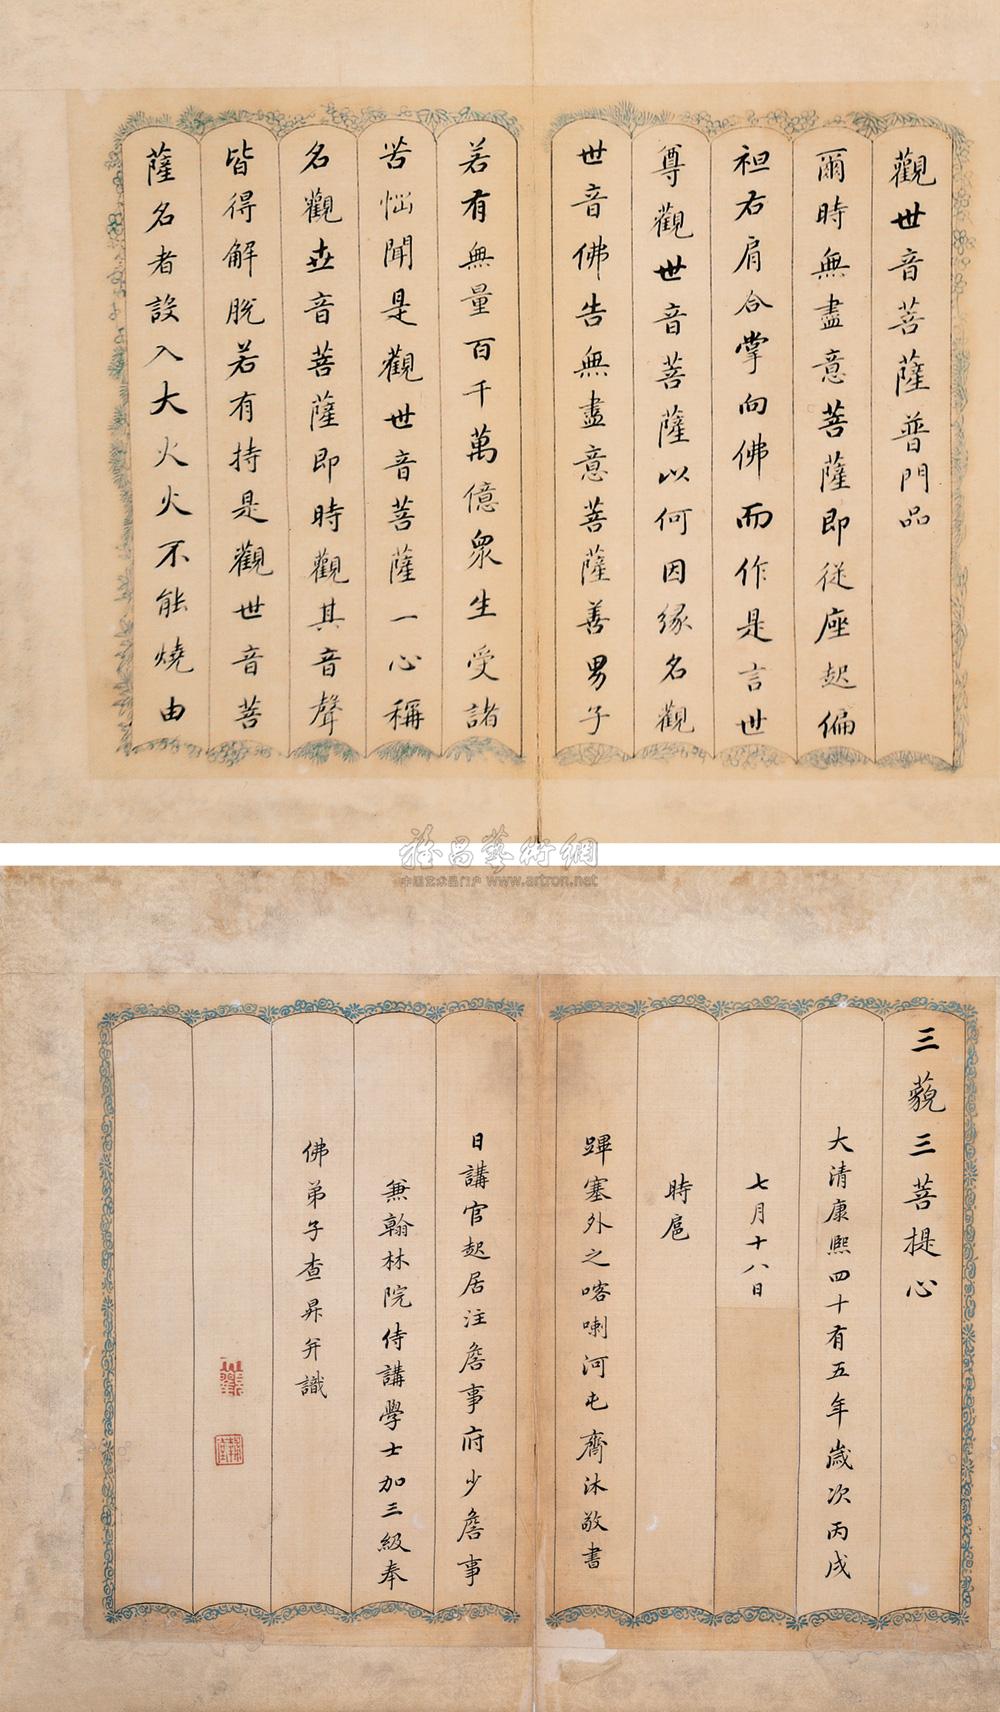 觀世音菩薩普門品
爾時無盡意菩薩即從座起偏
袒右肩合掌向佛而作是言世
尊觀世音菩薩以何因緣名觀
世音佛告無盡意菩薩善男子
若有無量百千萬億衆生受諸
苦惱聞是觀世音菩薩一心稱
名觀世音菩薩即時觀其音聲
皆得解脫若有持是觀世音菩
薩名者設入大火火不能燒由
雅昌藝術網
中国艺术品门户 www.artron.net
三藐三菩提心
大清康熙四十有五年歲次丙戌
七月十八日
時扈
蹕塞外之喀喇河屯齋沐敬書
日講官起居注詹事府少詹事
兼翰林院侍講學士加三級奉
佛弟子查昇弁識